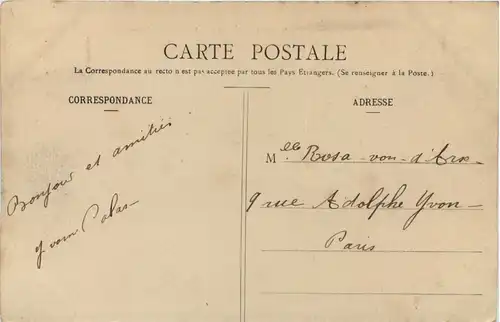 CARTE POSTALE
La Correspondance au recto n'est pas acceptée par tous les Pays Étrangers. (Se renseigner à la Poste.)
CORRESPONDANCE
Bonjour et amitiés
ADRESSE
Mlle Rosa von d'Arx
9 rue Adolphe Yvon
Paris